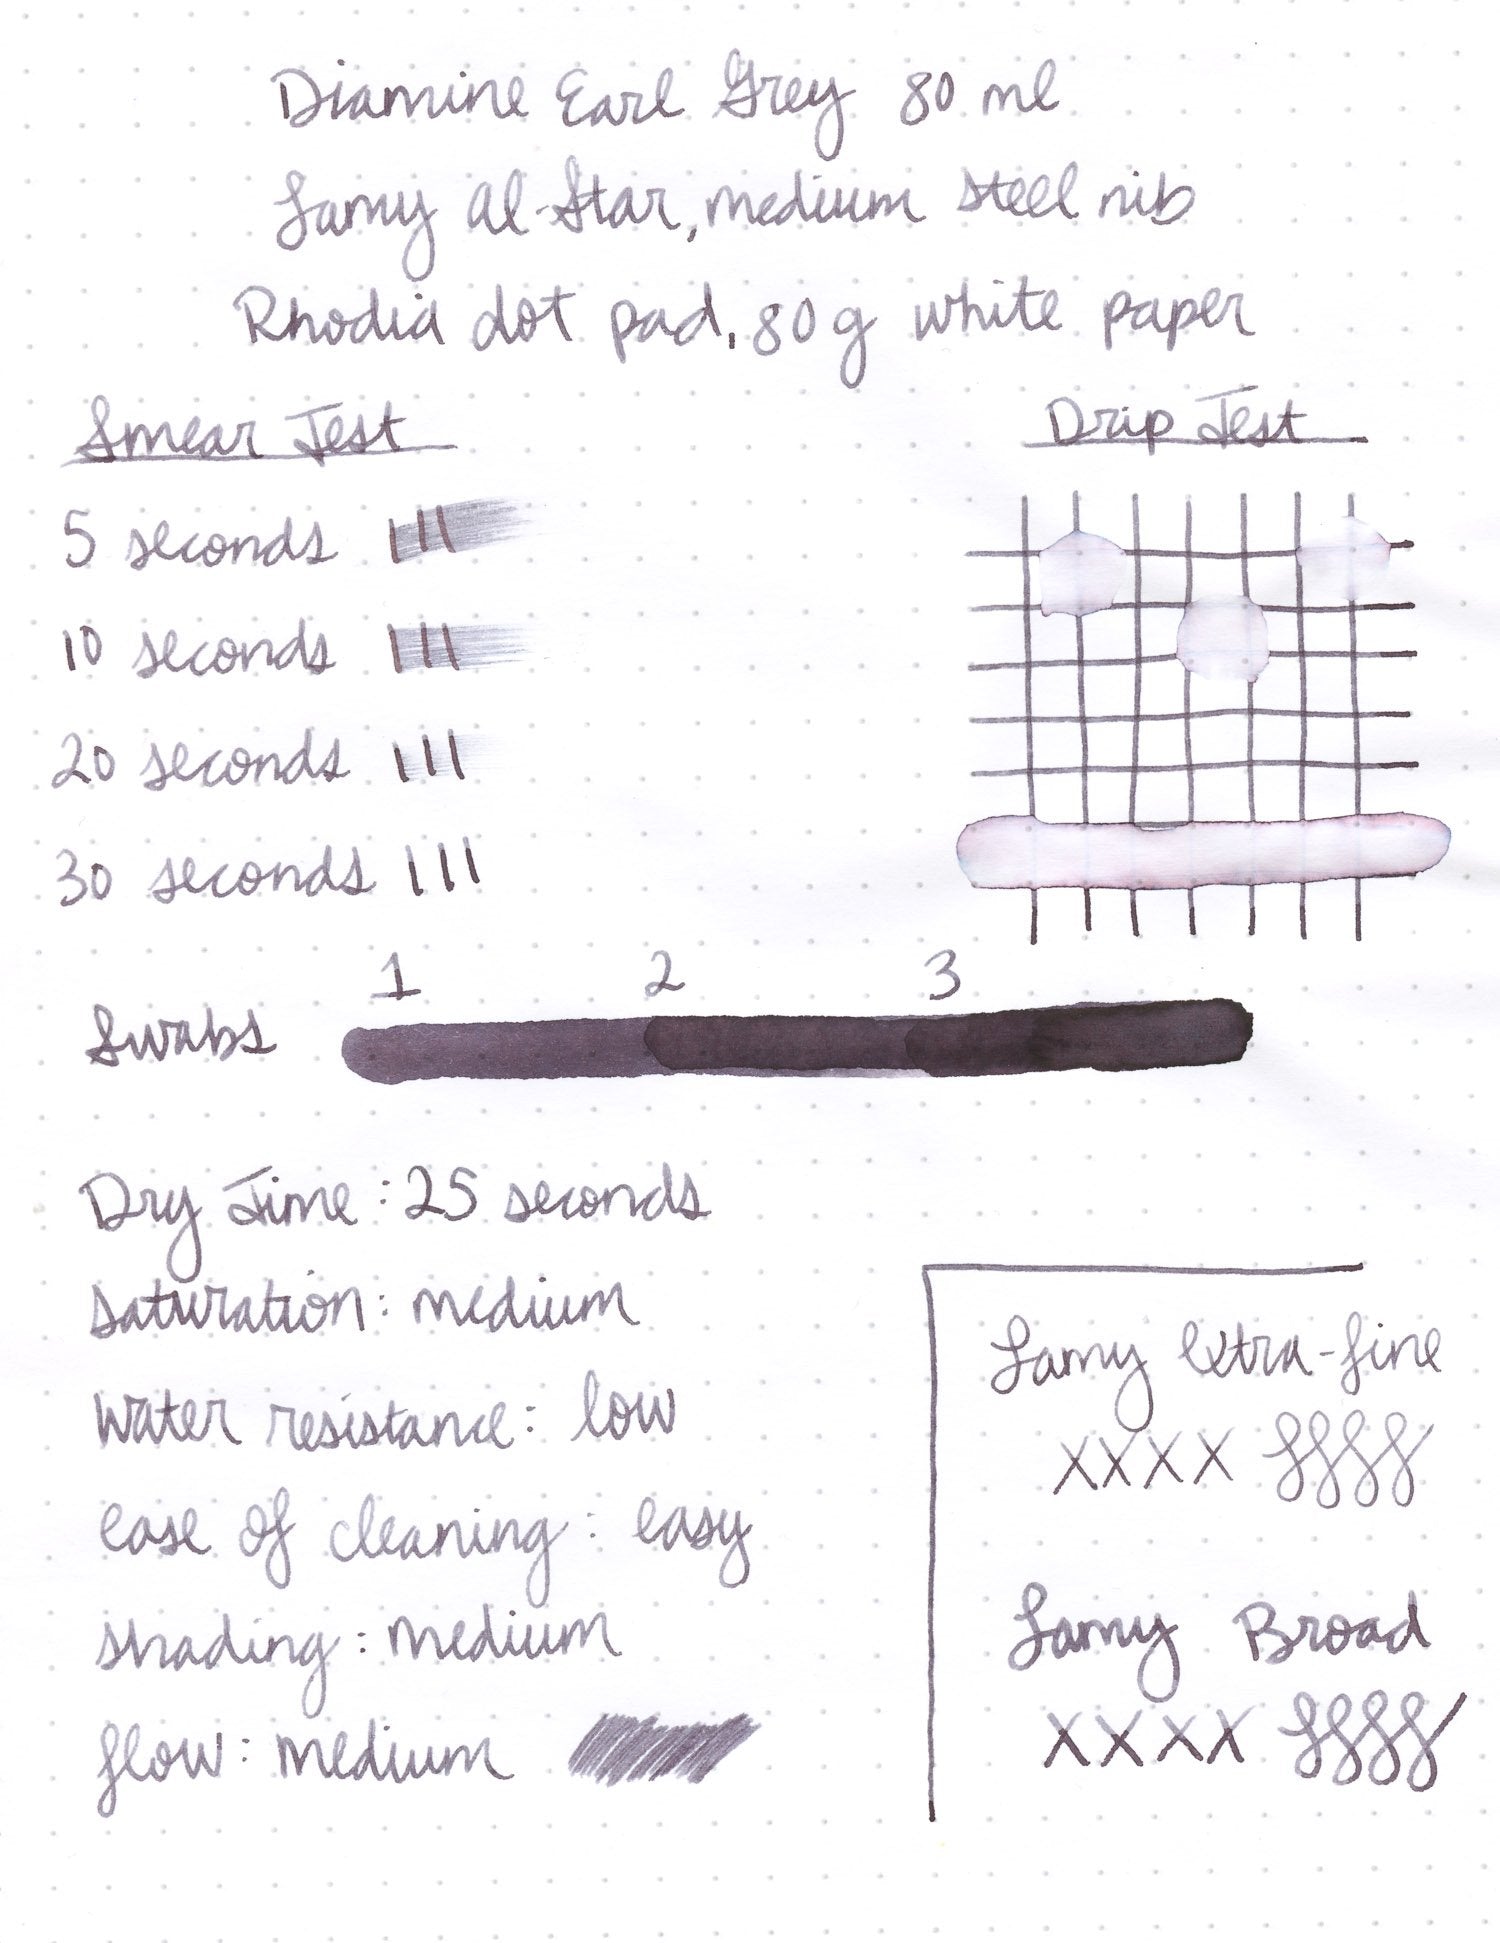 Diamine Earl Grey 80 ml
Lamy Al-Star, medium steel nib
Rhodia dot pad, 80g white paper
Smear Test
Drip Test
5 seconds
10 seconds
20 seconds
30 seconds
1 2 3
Swabs
Dry Time: 25 seconds
saturation: medium
water resistance: low
ease of cleaning: easy
shading: medium
flow: medium
Lamy extra-fine
XXXX
Lamy Broad
XXXX